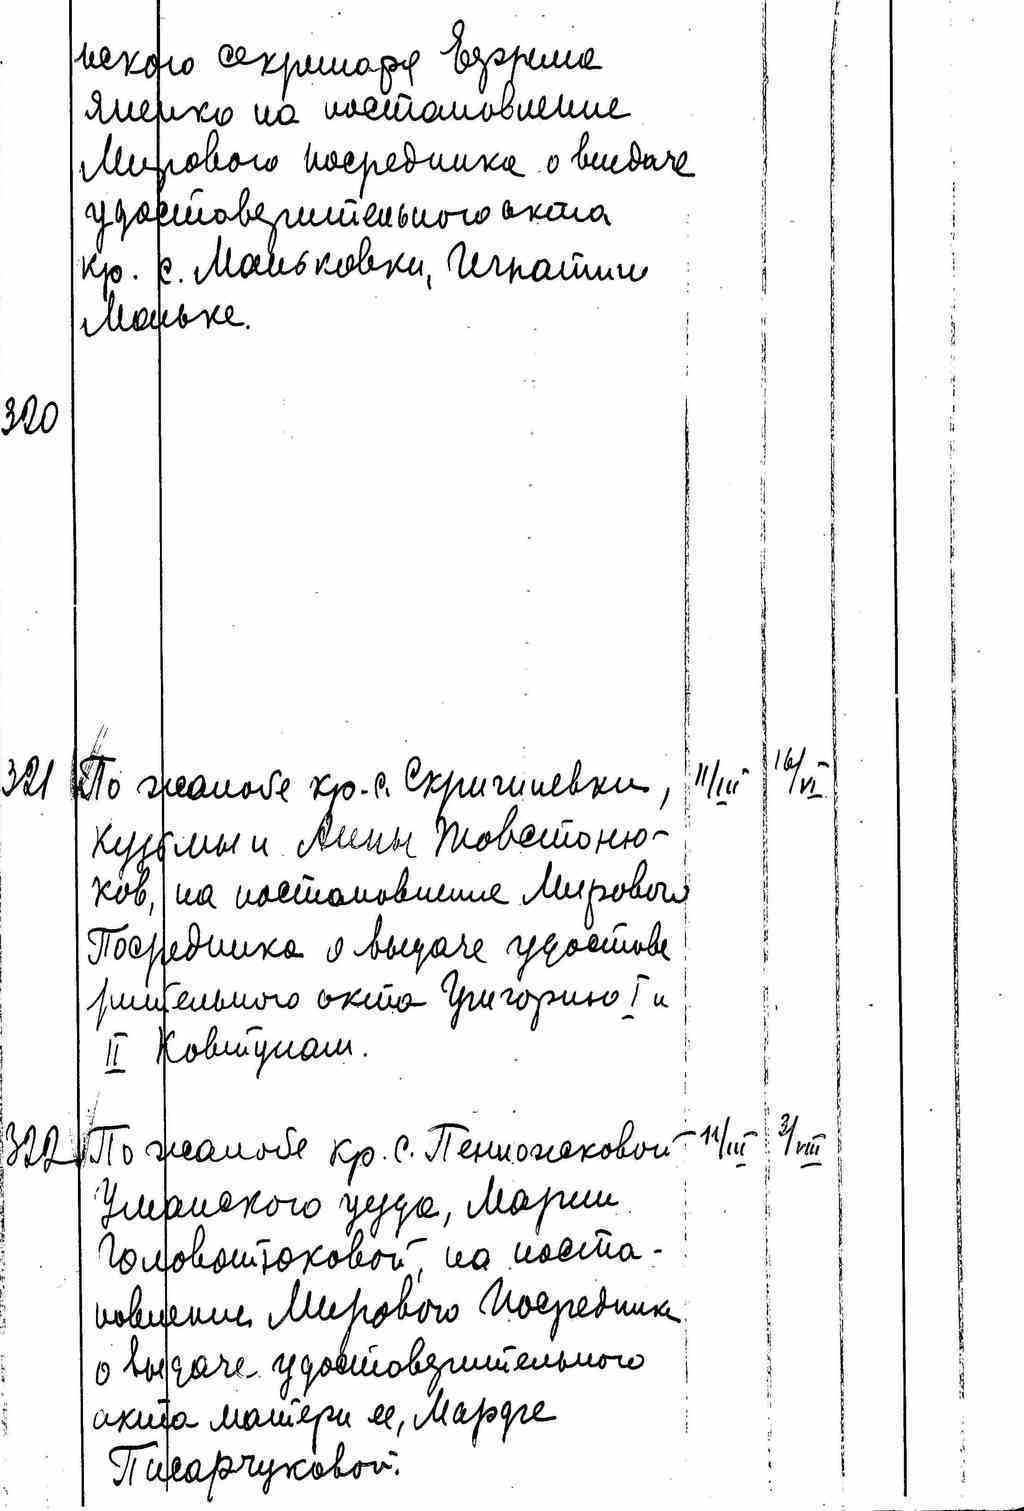 нского секретаря Ефрема
Яненко на постановление
Мирового посредника о выдаче
удостоверительного акта
кр. с. Маньковки, Игнатию
Маньке.
320
321 По жалобе кр. с. Скригиневки, 11/III 16/VI
Кузьмы и Анны Товстоню-
ков, на постановление Мирового
Посредника о выдаче удостове
рительного акта Григорию I и
II Ковтунам.
322 По жалобе кр. с. Пенножковой 11/III 3/VIII
Уманского уезда, Марии
Головатюковой, на поста-
новление Мирового Посредника
о выдаче удостоверительного
акта матери ее, Марфе
Писарчуковой.